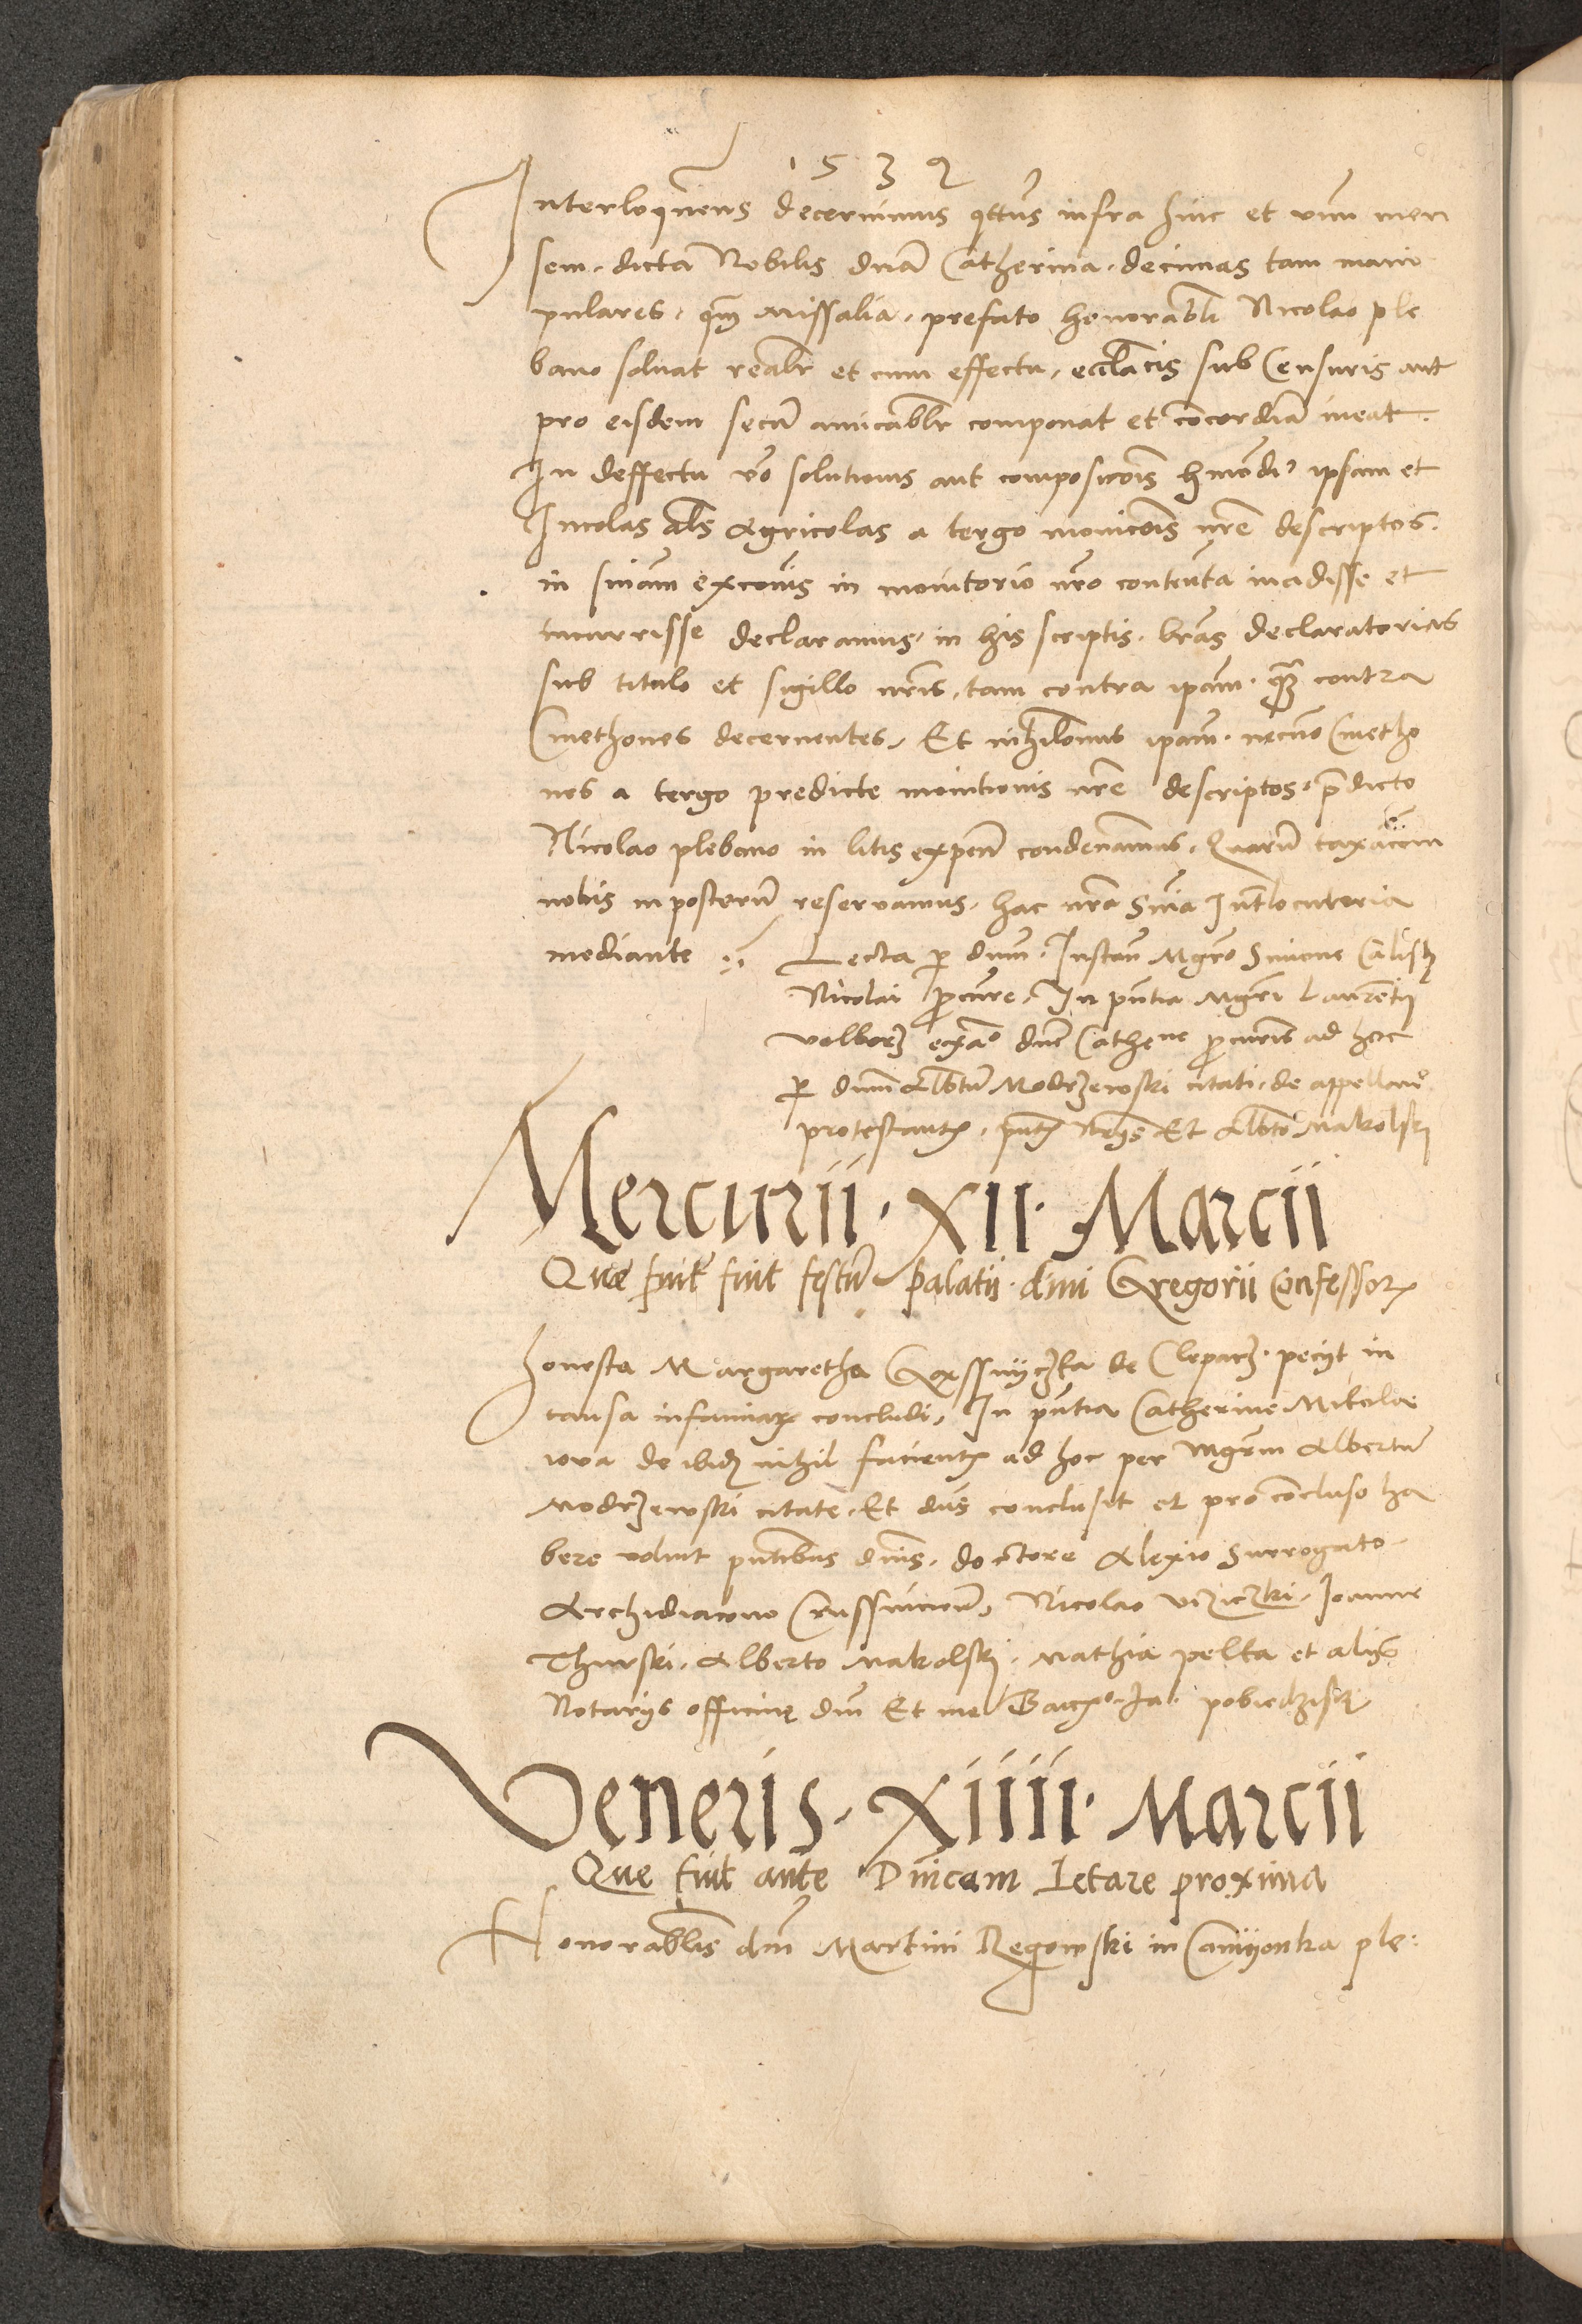 1532
Interloquens decernimus q̃tus infra hinc et unũ men
sem. dicta Nobilis dna Catherina. decimas tam mani
pulares. qm Missalia. prefato honorabli Nicolao ple
bano solvat realr et cum effectu, ecclacis sub Censuris aut
pro eisdem secũ amicablr componat et cõcordiã ineat.
In deffectu vo solutionis aut composicõis hmõdi ipsam et
Incolas als Agricolas a tergo monicõis nre descriptos.
in sniam excõis in monitorio nro contenta incidisse et
incurrisse declaramus, in his scriptis. lras declaratorias
sub titulo et sigillo nris, tam contra ipam. qm contra
Cmethones decernentes, Et nihilomus ipam. necno Cmetho
nes a tergo predicte monitionis nre descriptos, pdicto
Nicolao plebano in litis expens condenamus. Quarũ taxacoem
nobis in posterũ reservamus, hac nra snia Intlocutoria
mediante Lecta p dnm. Instan Mgro Simone Calisch
Nicolai procure, In pntia Mgri Laurentij
Volborz dne Cathene procuris ad hoc
p dnm Albtũ Modrzewski citati, de appellando
protestantis. pntibus Nrijs Et Albto Makolski
Mercurii. XII. Marcii
Que fuit fuit festũ palatii. divi Gregorii Confessoris
Honesta Margaretha de Cleparz. pecijt in
causa infamiarum concludi, In pntia Catherine Mikolae
iova de ibidem nihil facientis ad hoc per Mgrm Albertũ
Modrzewski citate. Et dns conclusit et pro concluso ha
bere voluit pntibus dnis. doctore Alexio Surrogato
Archidiacono Crussvicien, Nicolao Uzieczki. Ioanne
Thurski. Alberto Makolski. Mathia pelka et alijs
Notarijs officii dni Et me pobiedzisk
Veneris. XIIII. Marcii
Que fuit ante Dnicam Letare proxima
Honorablis dni Martini Regowski in Camyonka ple: